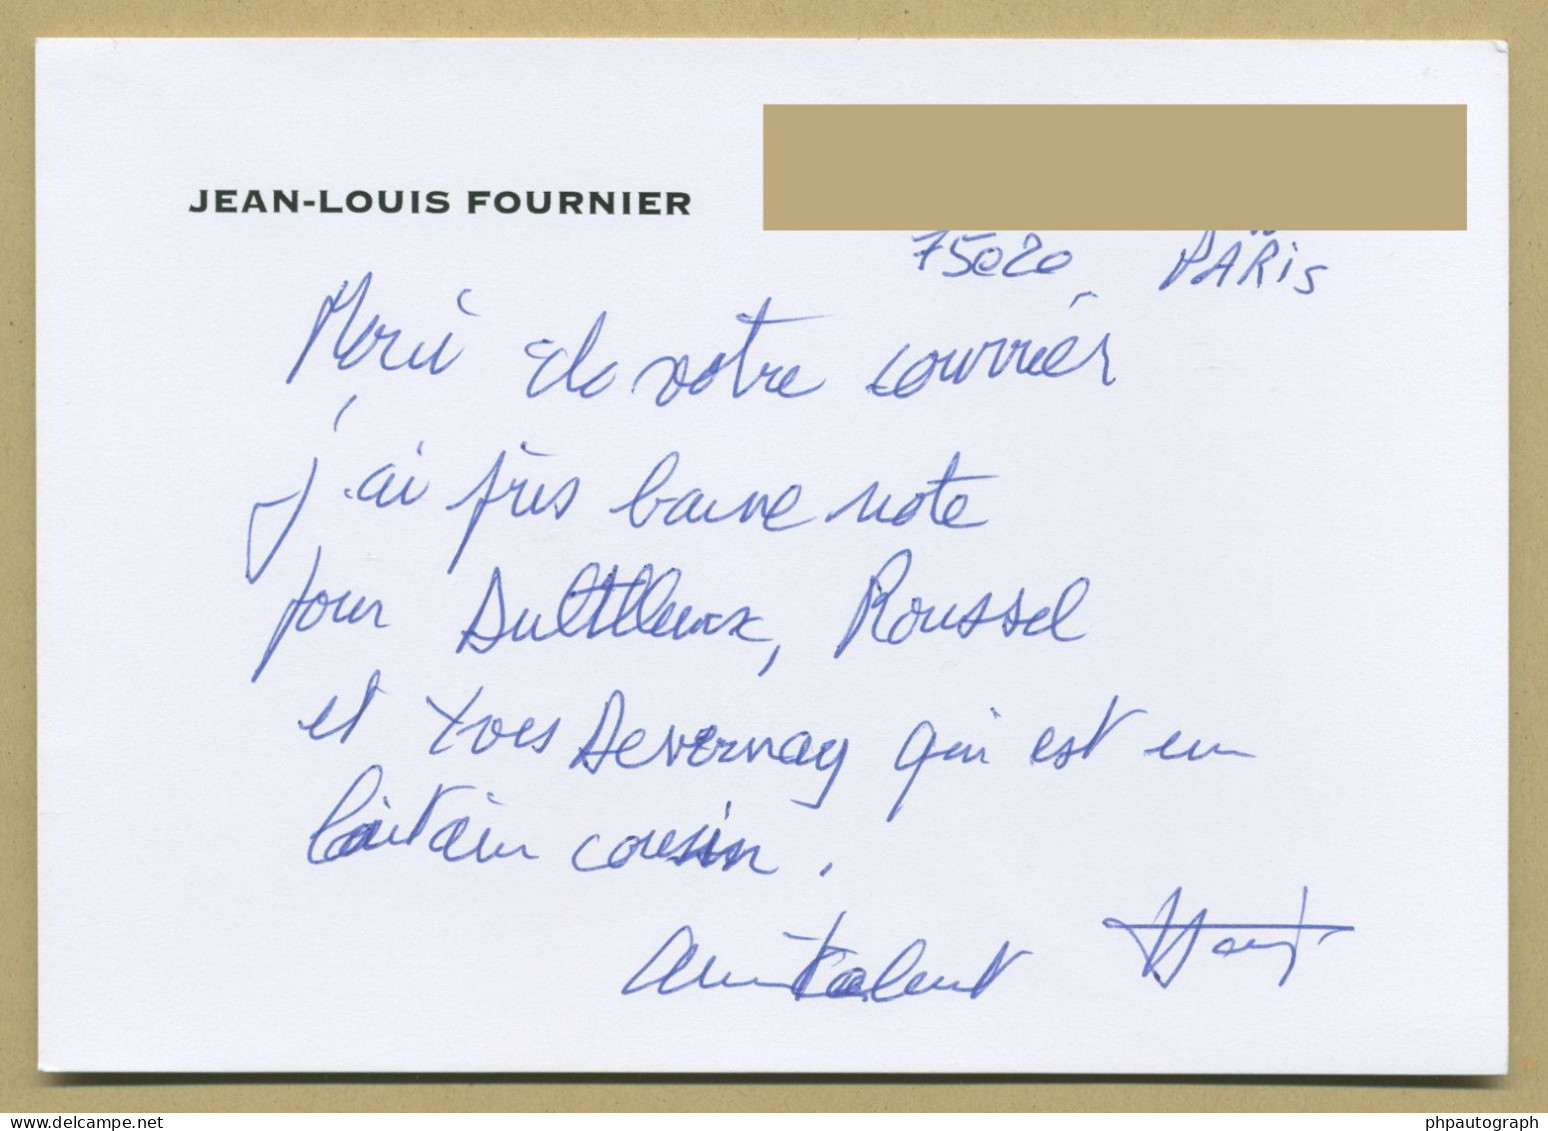 JEAN-LOUIS FOURNIER
75020 PARIS
Merci de votre courrier
j'ai très bonne note
pour Dutilleux, Roussel
et Yves Devernay qui est un
lointain cousin.
amicalement
phpautograph